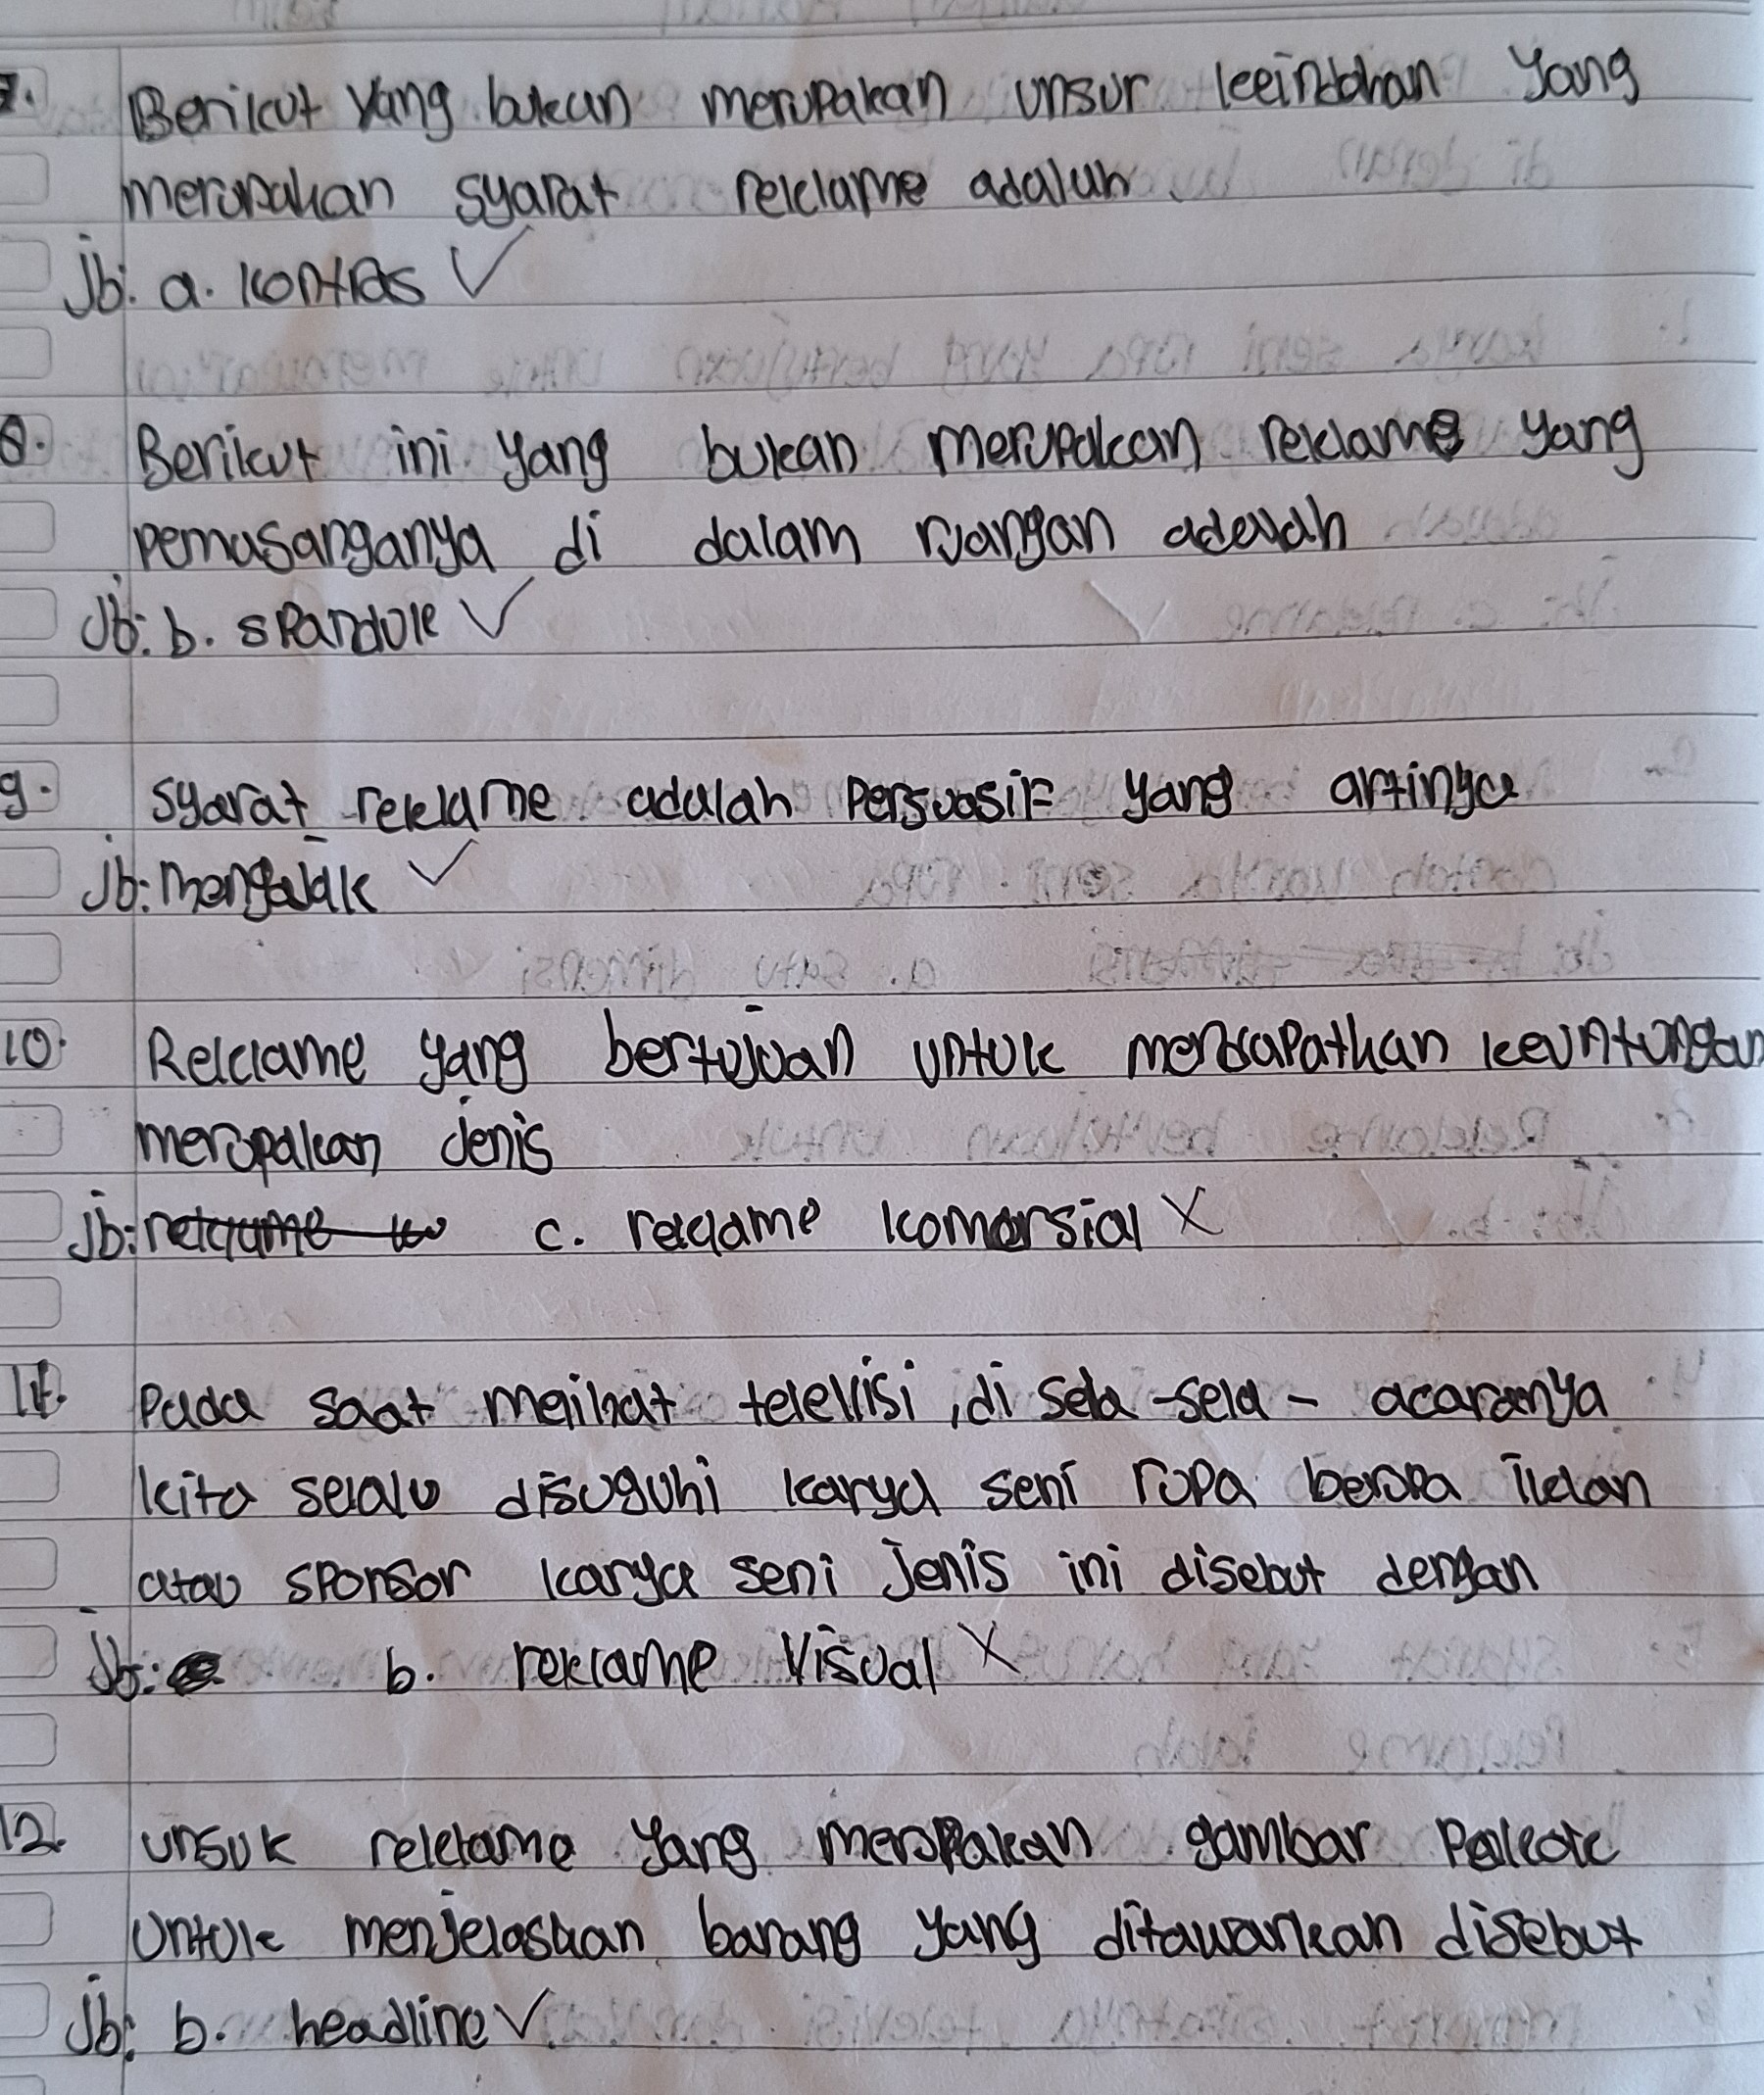 7. Berikut yang bukan merupakan unsur keindahan yang
merupakan syarat reklame adalah
jb: a. kontras ✓
8. Berikut ini yang bukan merupakan reklame yang
pemasanganya di dalam ruangan adalah
Jb: b. spanduk ✓
9. syarat reklame adalah Persuasif yang artinya
jb: mengajak ✓
10. Reklame yang bertujuan untuk mendapatkan keuntungan
merupakan jenis
jb: c. reklame komersial X
11. Pada saat melihat televisi, di sela-sela - acaranya
kita selalu disuguhi karya seni rupa berupa iklan
atau sponsor karya seni jenis ini disebut dengan
Jb: b. reklame visual X
12. unsuk reklame yang merupakan gambar Pokok
untuk menjelaskan barang yang ditawarkan disebut
jb: b. headline ✓